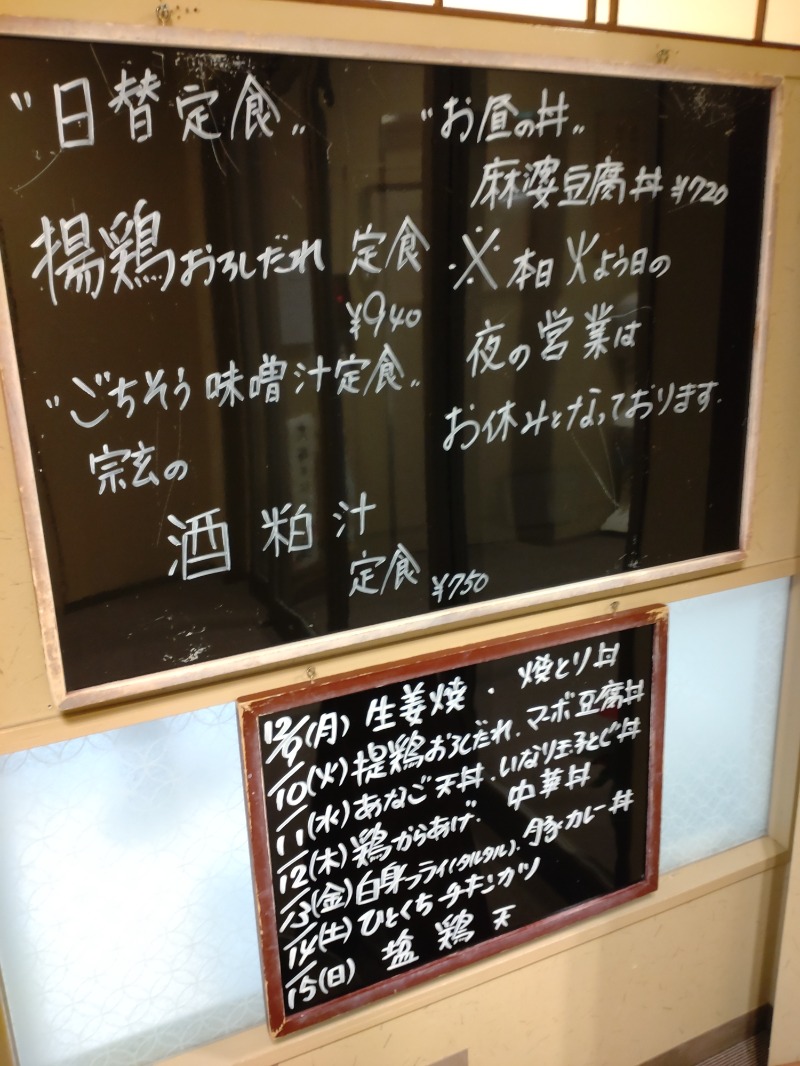 〃日替定食〃
揚鶏おろしだれ 定食
¥940
〃ごちそう味噌汁定食〃
宗玄の
酒粕汁
定食 ¥750
〃お昼の丼〃
麻婆豆腐丼 ¥720
※本日火よう日の
夜の営業は
お休みとなっております.
12/9(月) 生姜焼・焼とり丼
/10(火) 揚鶏おろしだれ.マーボ豆腐丼
/11(水) あなご天丼.いなり玉子とじ丼
/12(木) 鶏からあげ.中華丼
/13(金) 白身フライ(タルタル).豚カレー丼
/14(土) ひとくちチキンカツ
/15(日) 塩鶏天